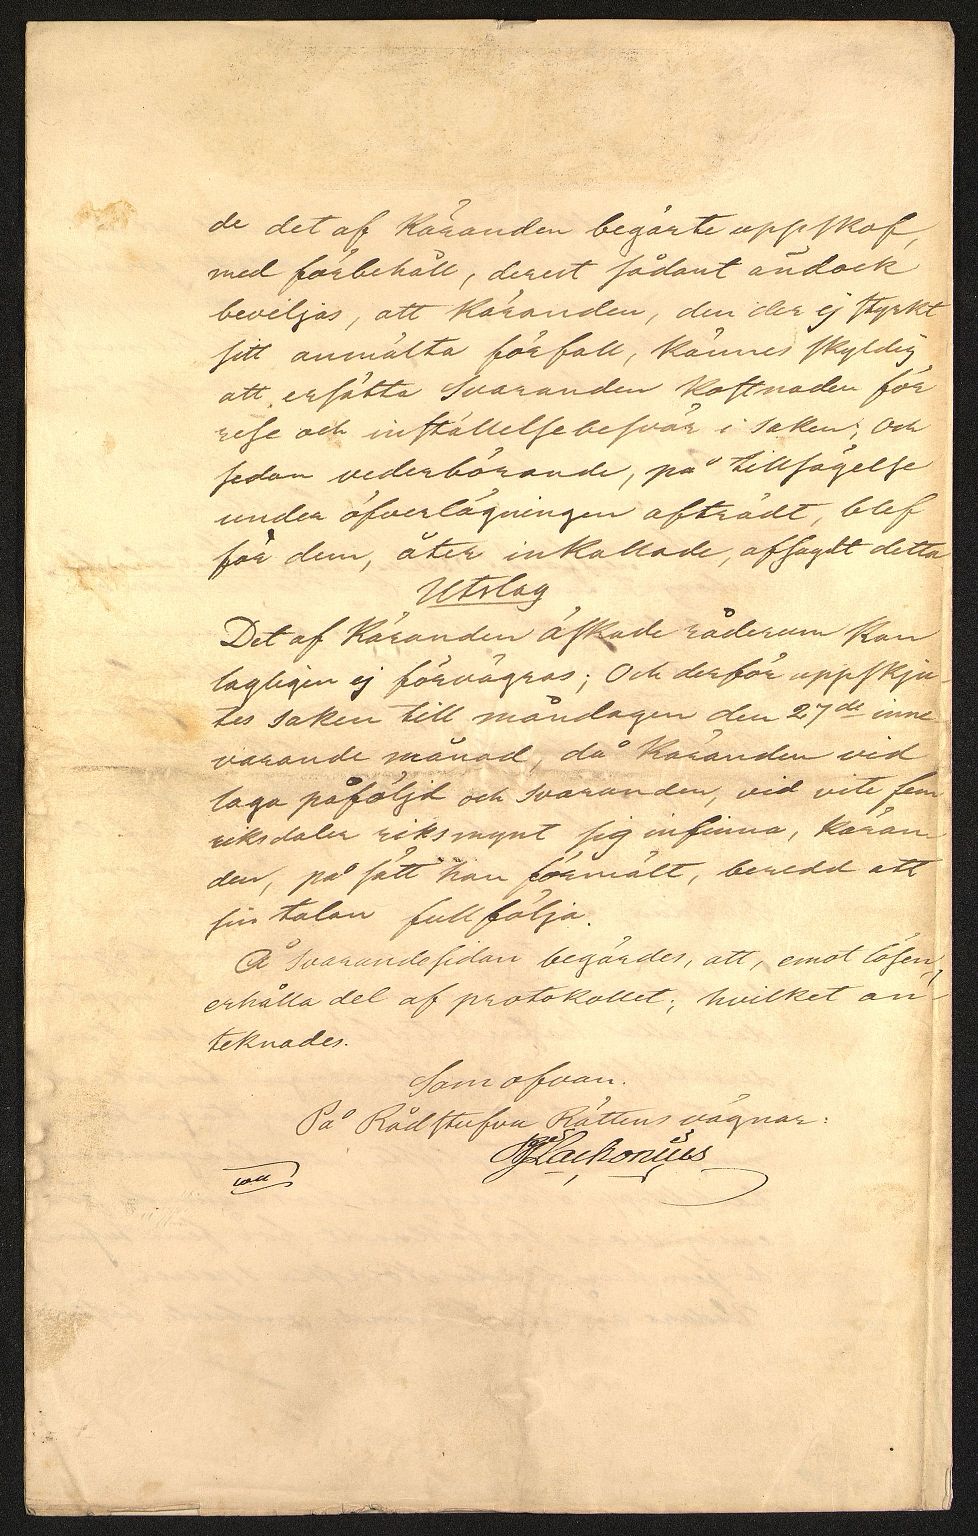 de det af Käranden begärte uppskof,
med förbehåll, derest sådant ändock
beviljas, att Käranden, den der ej styrkt
sitt anmälta förfall, kännes skyldig
att ersätta Svaranden kostnaden för
rese och inställelsebesvär i saken; och
sedan vederbörande, på tillsägelse
under öfverläggningen afträdt, blef
för dem, åter inkallade, afsagdt detta
Utslag
Det af Käranden äskade råderum kan
lagligen ej förvägras; Och derför uppskju-
tes saken till måndagen den 27de inne
varande månad, då Käranden vid
laga påföljd och Svaranden, vid vite fem
riksdaler riksmynt sig infinna, Käran
den, på sätt han förmält, beredd att
sin talan fullfölja.
Å Svarandesidan begärdes, att, emot lösen,
erhålla del af protokollet; hvilket an-
teknades.
Som ofvan.
På Rådstufvu Rättens vägnar: